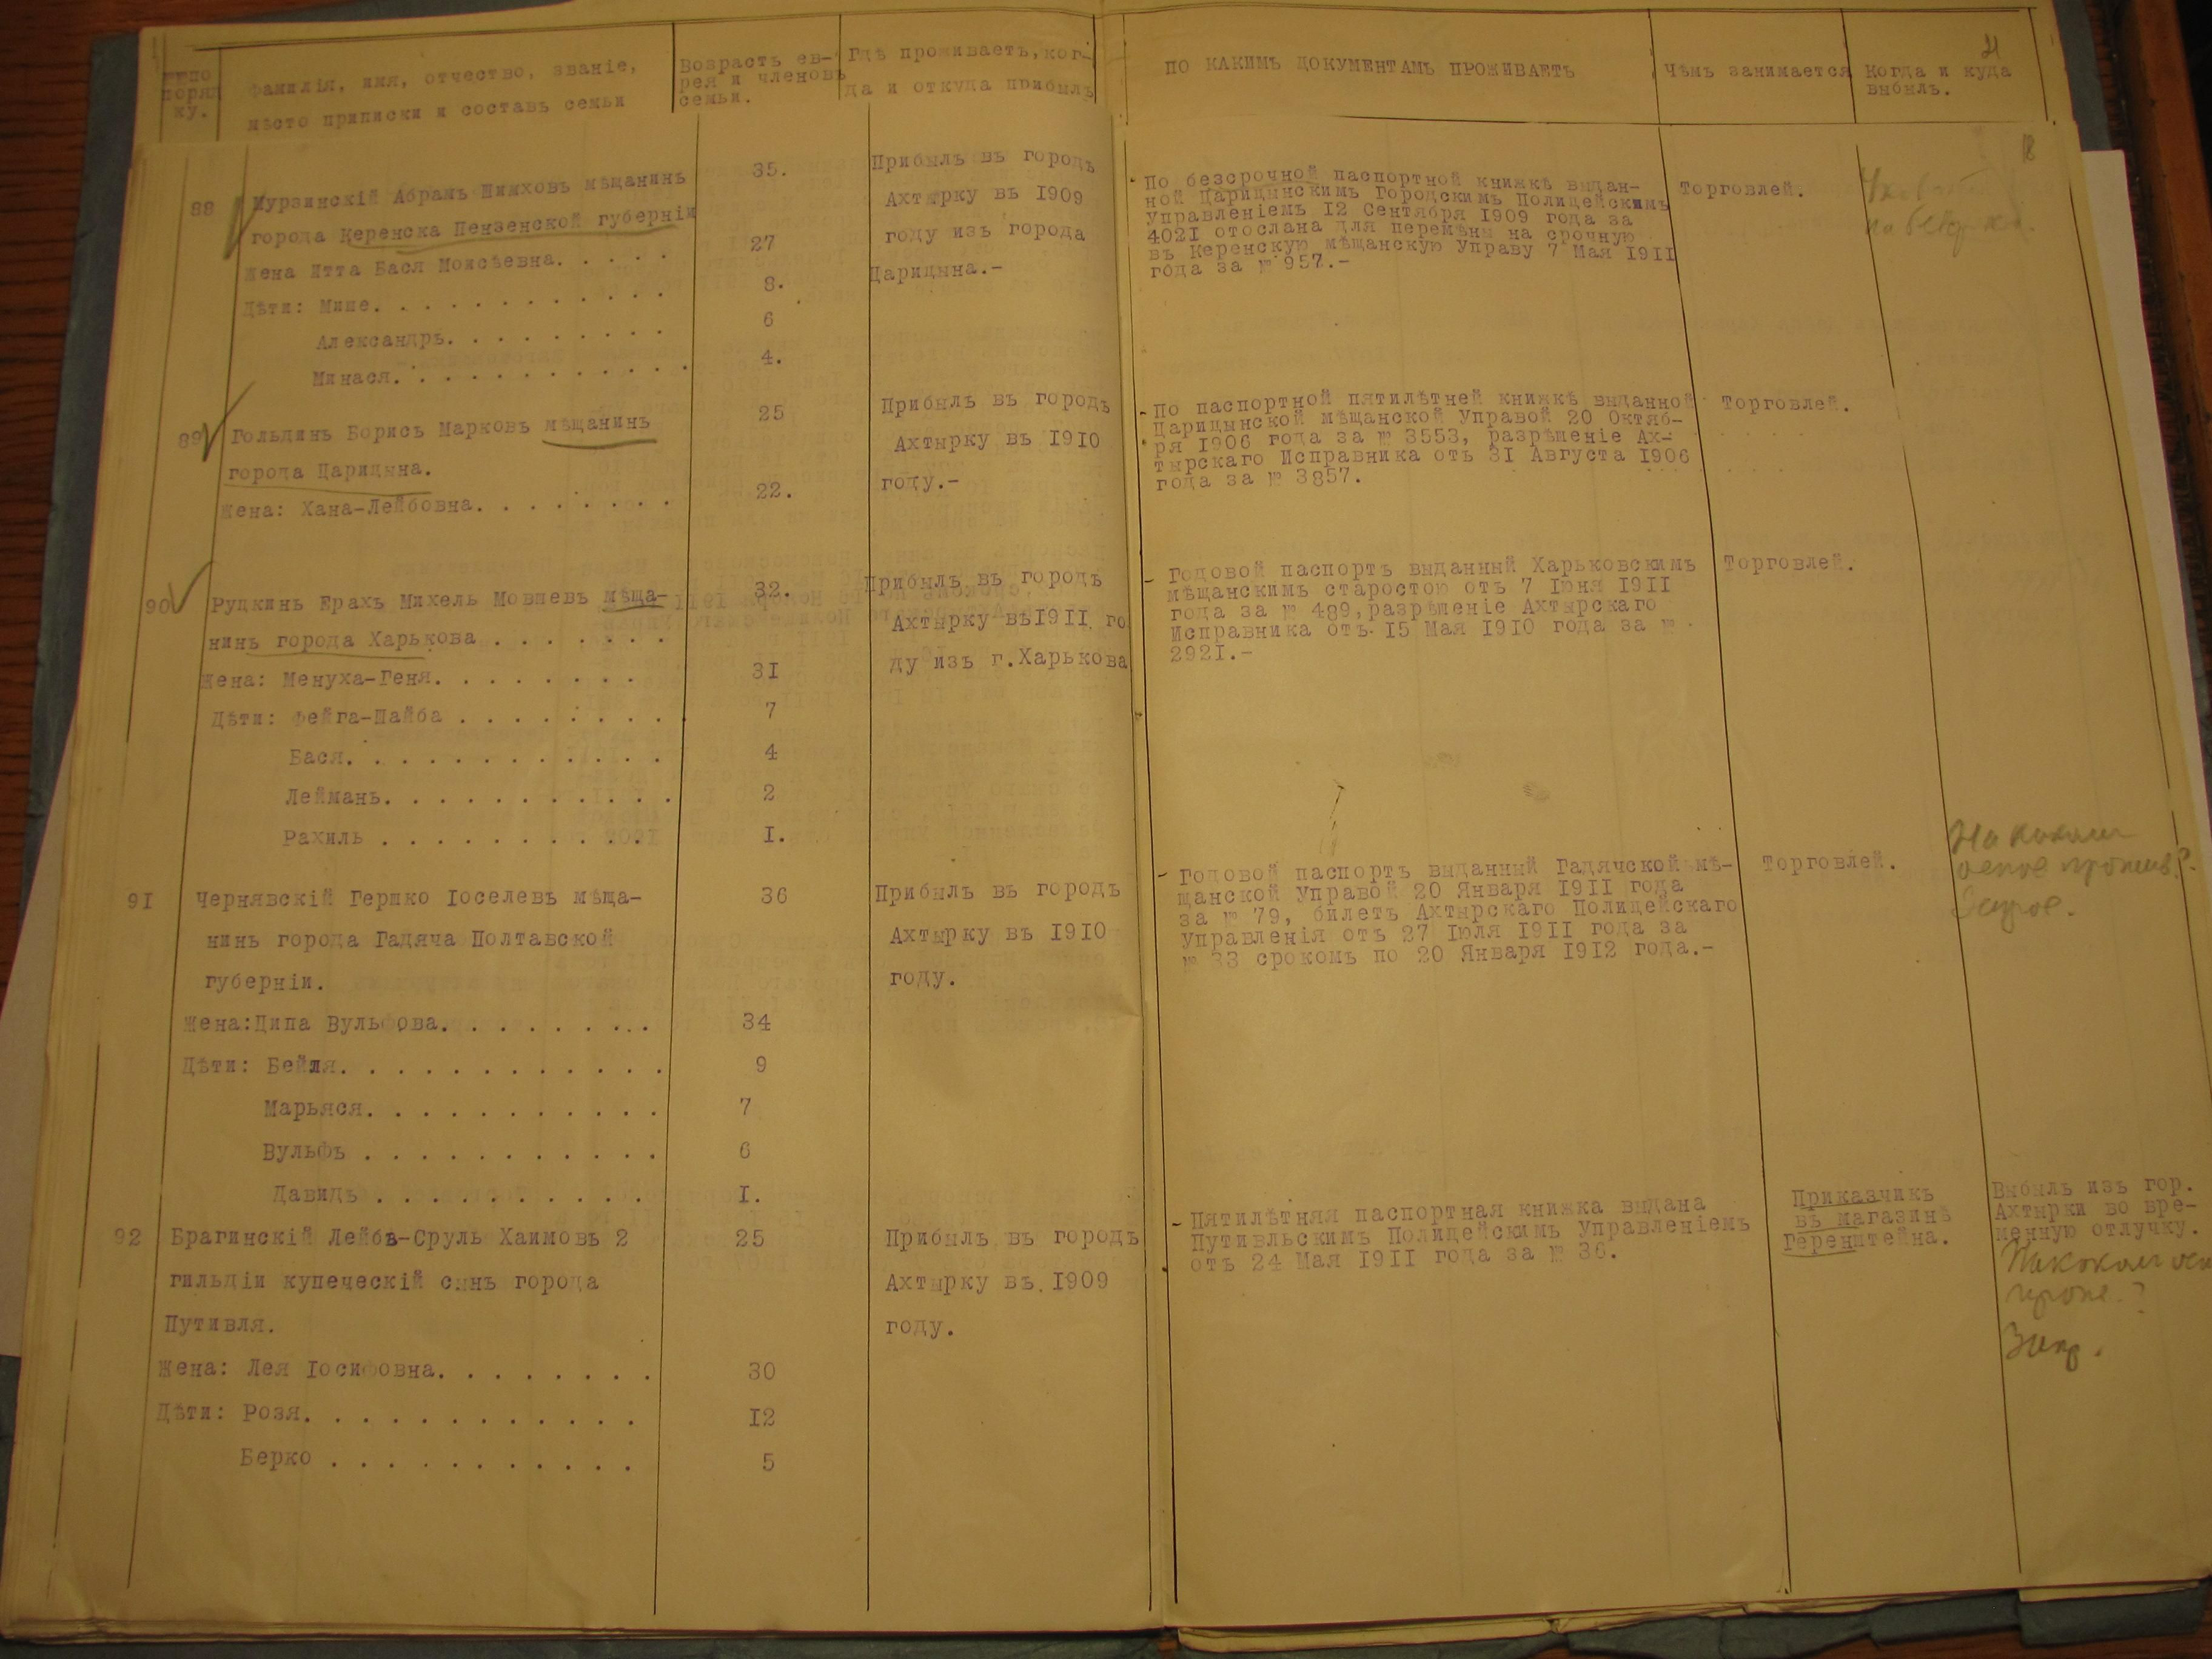 №№ по
поряд
ку.
Фамилія, имя, отчество, званіе,
мѣсто приписки и составъ семьи
Возрастъ ев-
рея и членовъ
семьи.
Гдѣ проживаетъ, ког-
да и откуда прибылъ
ПО КАКИМЪ ДОКУМЕНТАМЪ ПРОЖИВАЕТЪ
Чѣмъ занимается
Когда и куда
выбылъ.
21
18
88
Мурзинскій Абрамъ Шимховъ мѣщанинъ
города Керенска Пензенской губерніи
Жена Итта Бася Моисѣевна.
Дѣти: Мипе.
Александръ.
Минася.
35.
27
8.
6
4.
Прибылъ въ городъ
Ахтырку въ 1909
году изъ города
Царицына.-
По безсрочной паспортной книжкѣ выдан-
ной Царицынскимъ Городскимъ Полицейскимъ
Управленіемъ 12 Сентября 1909 года за
4021 отослана для перемѣны на срочную
въ Керенскую мѣщанскую Управу 7 Мая 1911
года за № 957.-
Торговлей.
89
Гольдинъ Борисъ Марковъ мѣщанинъ
города Царицына.
Жена: Хана-Лейбовна.
25
22.
Прибылъ въ городъ
Ахтырку въ 1910
году.-
По паспортной пятилѣтней книжкѣ выданной
Царицынской мѣщанской Управой 20 Октяб-
ря 1906 года за № 3553, разрѣшеніе Ах-
тырскаго Исправника отъ 31 Августа 1906
года за № 3857.
Торговлей.
90
Рудкинъ Ерахъ Михель Мовшевъ мѣща-
нинъ города Харькова
Жена: Менуха-Геня.
Дѣти: Фейга-Шайба
Бася.
Лейманъ.
Рахиль
32.
31
7
4
2
I.
Прибылъ въ городъ
Ахтырку въ1911 го
ду изъ г.Харькова
- Годовой паспортъ выданный Харьковскимъ
мѣщанскимъ старостою отъ 7 Іюня 1911
года за № 489,разрѣшеніе Ахтырскаго
Исправника отъ 15 Мая 1910 года за №
2921.-
Торговлей.
91
Чернявскій Гершко Іоселевъ мѣща-
нинъ города Гадяча Полтавской
губерніи.
Жена:Ципа Вульфова.
Дѣти: Бейля.
Марьяся.
Вульфъ
Давидъ
36
34
9
7
6
I.
Прибылъ въ городъ
Ахтырку въ 1910
году.
- Годовой паспортъ выданный Гадячской мѣ-
щанской Управой 20 Января 1911 года
за № 79, билетъ Ахтырскаго Полицейскаго
Управленія отъ 27 Іюля 1911 года за
№ 33 срокомъ по 20 Января 1912 года.-
Торговлей.
92
Брагинскій Лейбъ-Сруль Хаимовъ 2
гильдіи купеческій сынъ города
Путивля.
Жена: Лея Іосифовна.
Дѣти: Розя.
Берко
25
30
12
5
Прибылъ въ городъ
Ахтырку въ 1909
году.
- Пятилѣтняя паспортная книжка выдана
Путивльскимъ Полицейскимъ Управленіемъ
отъ 24 Мая 1911 года за № 36.
Приказчикъ
въ магазинѣ
Геренштейна.
Выбылъ изъ гор.
Ахтырки во вре-
менную отлучку.